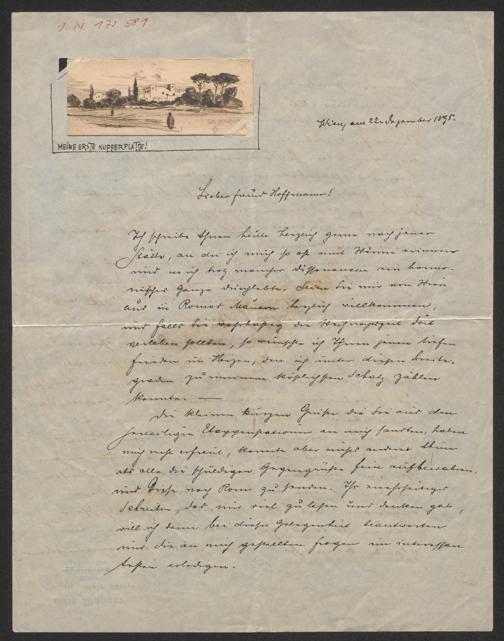 J. N. 172 581
MEINE ERSTE KUPFERPLATTE!
Wien, am 22. Dezember 1895.
Lieber Freund Hoffmann!
Ich schreibe Ihnen heute herzlich gern nach jener
Stätte, an die ich mich so oft mit Wonne erinnere
und wo ich trotz mancher Dissonanzen ein harmo-
nisches Ganze durchlebte. Seien Sie mir am
aus in Romas Mauern herzlich willkommen,
und falls Sie der Weihnachtszeit dort
weilen sollten, so wünsche ich Ihnen jenen tiefen
Frieden im Herzen, den ich unter diesen Breite-
graden zu meinem köstlichsten Schatz zählen
konnte. —
Die kleinen kurzen Grüße die Sie aus den
jeweiligen Etappenstationen an mich sandten, haben
mich recht erfreut, konnte aber nichts anderes thun
als alle die schuldigen Gegengrüße fein aufbewahren
und diese nach Rom zu senden. Ihr mehrseitiges
Schreiben, das mir viel zu lesen und denken gab,
will ich denn bei dieser Gelegenheit beantworten
und die an mich gestellten Fragen im
erledigen.